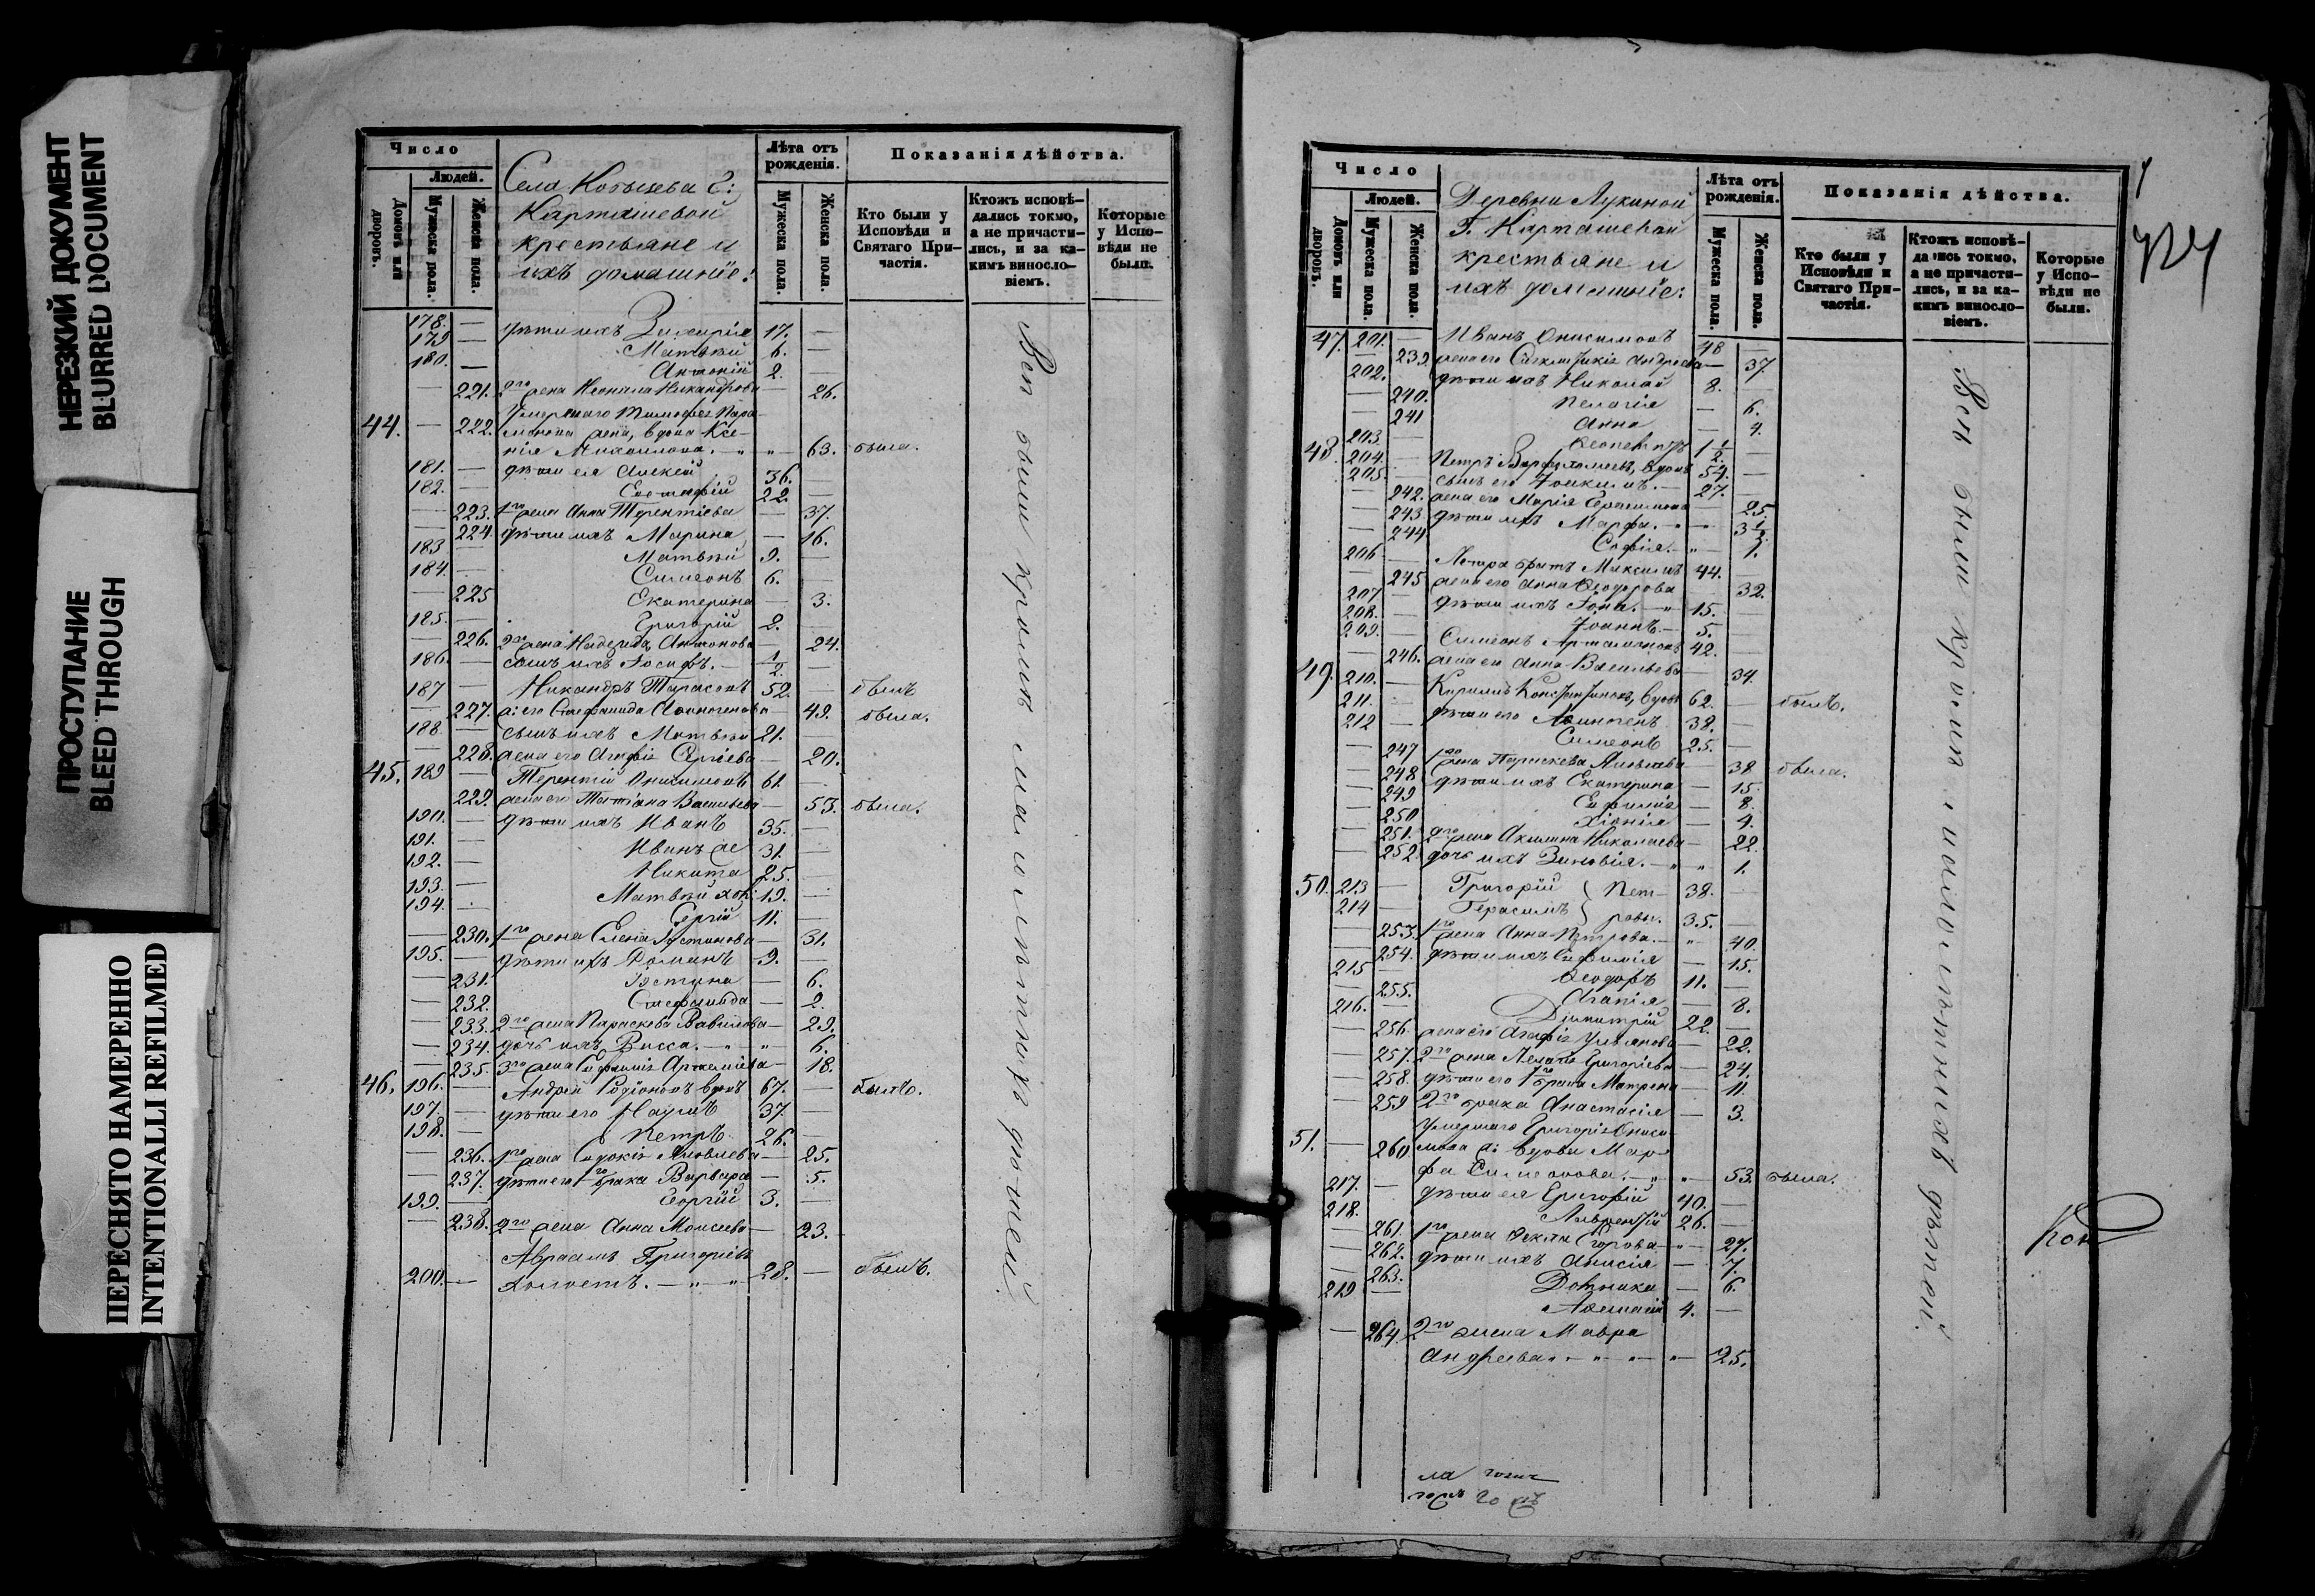 НЕРЕЗКИЙ ДОКУМЕНТ
BLURRED DOCUMENT
ПРОСТУПАНИЕ
BLEED THROUGH
ПЕРЕСНЯТО НАМЕРЕННО
INTENTIONALLI REFILMED
Число
Людей.
Домовъ или дворовъ.
Мужеска пола.
Женска пола.
Села
Карташевой
крестьяне и
ихъ домашніе:
Лѣта отъ рожденія.
Мужеска пола.
Женска пола.
Показанія дѣйства.
Кто были у Исповѣди и Святаго При-частія.
Ктожъ исповѣ-дались токмо, а не причасти-лись, и за ка-кимъ винosло-віемъ.
Которые у Испо-вѣди не были.
178. — дѣти ихъ Захарія 17. —
179 — Матвѣй 6. —
180. — Антоній 2. —
— 221. 2го жена Неонила Никандрова — 26.
Умершаго Тимофея Пара-
44. — 222. монова жена, вдова Ксе-
нія Михайлова. — 63. была.
181. — дѣти ея Алексѣй 36. —
182. — Евстафій 22. —
— 223. 1го жена Анна Терентіева — 37.
— 224. дѣти ихъ Марина — 16.
183 — Матвѣй 9. —
184. — Симеонъ 6. —
— 225 Екатерина — 3.
185. — Григорій 2. —
— 226. 2го жена Надежда Антонова — 24.
186. — сынъ ихъ Іосифъ. — 1/2. —
187 — Никандръ Тарасовъ 52. — былъ
— 227. ж: его Стефанида Аѳиногенова — 49. была.
188 — сынъ ихъ Матвѣй 21. —
— 228. жена его Агафія Сергіева — 20.
45. 189 — Терентій Онисимовъ 61. —
— 229. жена его Татіана Васильева — 53. была.
190. — дѣти ихъ Иванъ 35. —
191. — Иванъ же 31. —
192. — Никита 25. —
193. — Матвѣй хол: 19. —
194. — Сергій 11. —
— 230. 1го жена Елена Іустинова — 31.
195. — дѣти ихъ Романъ 9. —
— 231. Іустина — 6.
— 232. Стефанида — 2.
— 233. 2го жена Параскева Вавилова — 29.
— 234. дочь ихъ Васса. — 6.
— 235. 3го жена Евфимія Артеміева — 18.
46. 196. — Андрей Родіоновъ вдовъ 67. — былъ.
197. — дѣти его Наумъ 37. —
198. — Петръ 26. —
— 236. 1го жена Евдокія Яковлева — 25.
— 237. дѣти его 1го брака Варвара — 5.
199. — Георгій 3. —
— 238. 2го жена Анна Моисеева — 23.
Авраамъ Григорьевъ
200. — холостъ. — 28. — былъ.
Всѣ были кромѣ малолѣтнихъ дѣтей
Число
Людей.
Домовъ или дворовъ.
Мужеска пола.
Женска пола.
Деревни Лукиной
Г. Карташевой
крестьяне и
ихъ домашніе:
Лѣта отъ рожденія.
Мужеска пола.
Женска пола.
Показанія дѣйства.
Кто были у Исповѣди и Святаго При-частія.
Ктожъ исповѣ-дались токмо, а не причасти-лись, и за ка-кимъ виносло-віемъ.
Которые у Испо-вѣди не были.
47. 201. — Иванъ Онисимовъ 48 —
— 239 жена его Андреева — 37
202. — дѣти ихъ Николай 8. —
— 240. Пелагія — 6.
— 241 Анна — 4.
203. — Ѳеопемптъ 1 1/2. —
48. 204. — Петръ Варфоломеевъ, вдовъ 54. —
205. — сынъ его Іоакимъ. — 27. —
— 242. жена его Марія — 25.
— 243. дѣти ихъ Марфа. — 3 1/2.
— 244. Софія. — 1.
206 — Петра братъ Максимъ 44. —
— 245 жена его Анна Ѳеодорова — 32.
207 — дѣти ихъ Іона. — 15. —
208. — Іоаннъ. — 5. —
209. — Симеонъ Артамоновъ 42. —
— 246. жена его Анна Васильева — 34.
49. 210. — Кириллъ Константиновъ, вдовъ 62. — былъ.
211. — дѣти его Аѳиногенъ 38. —
212 — Симеонъ 25. —
— 247 1го жена Параскева Яковлева — 38 была.
— 248 дѣти ихъ Екатерина — 15.
— 249 Евфимія — 8.
— 250 Хіонія — 4.
— 251. 2го жена Акилина Николаева — 22.
— 252. дочь ихъ Зиновія. — 1.
50. 213 — Григорій } Пет- 38. —
214 — Герасимъ } ровы. 35. —
— 253. 1го жена Анна Петрова. — 40.
— 254. дѣти ихъ Евфимія — 15.
215 — Ѳеодоръ 11. —
— 255. Агапія — 8.
216. — Димитрій 22. —
— 256. жена его Агафія Ульянова — 22.
— 257. 2го жена Пелагія Григорьева — 24.
— 258. дѣти его 1го брака Матрена — 11.
— 259 2го брака Анастасія — 3.
Умершаго Григорія Ониси-
51. — 260 мова ж: вдова Мар-
фа Симеонова. — 53. была.
217. — дѣти ея Григорій 40. —
218. — Лаврентій 26. —
— 261. 1го жена Ѳекла Егорова — 27.
— 262. дѣти ихъ Анисія — 7.
— 263. Домника — 6.
219 — 4. —
— 264. 2го жена Мавра
Андреева — 25.
Всѣ были кромѣ малолѣтнихъ дѣтей.